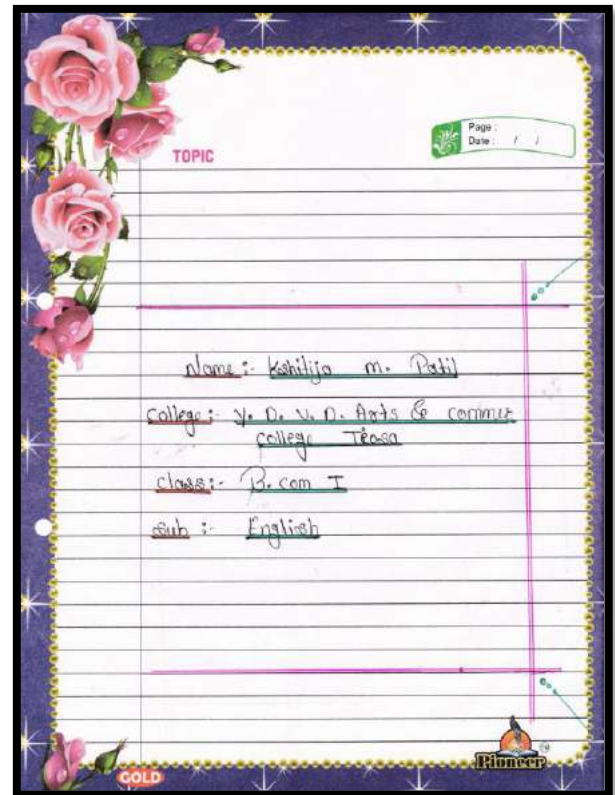 Page :
Date : / /
TOPIC
Name :- Kshitija M. Patil
College :- Y. D. V. D. Arts & commer
college Teosa
class :- B. com I
sub :- English
Pioneer
GOLD